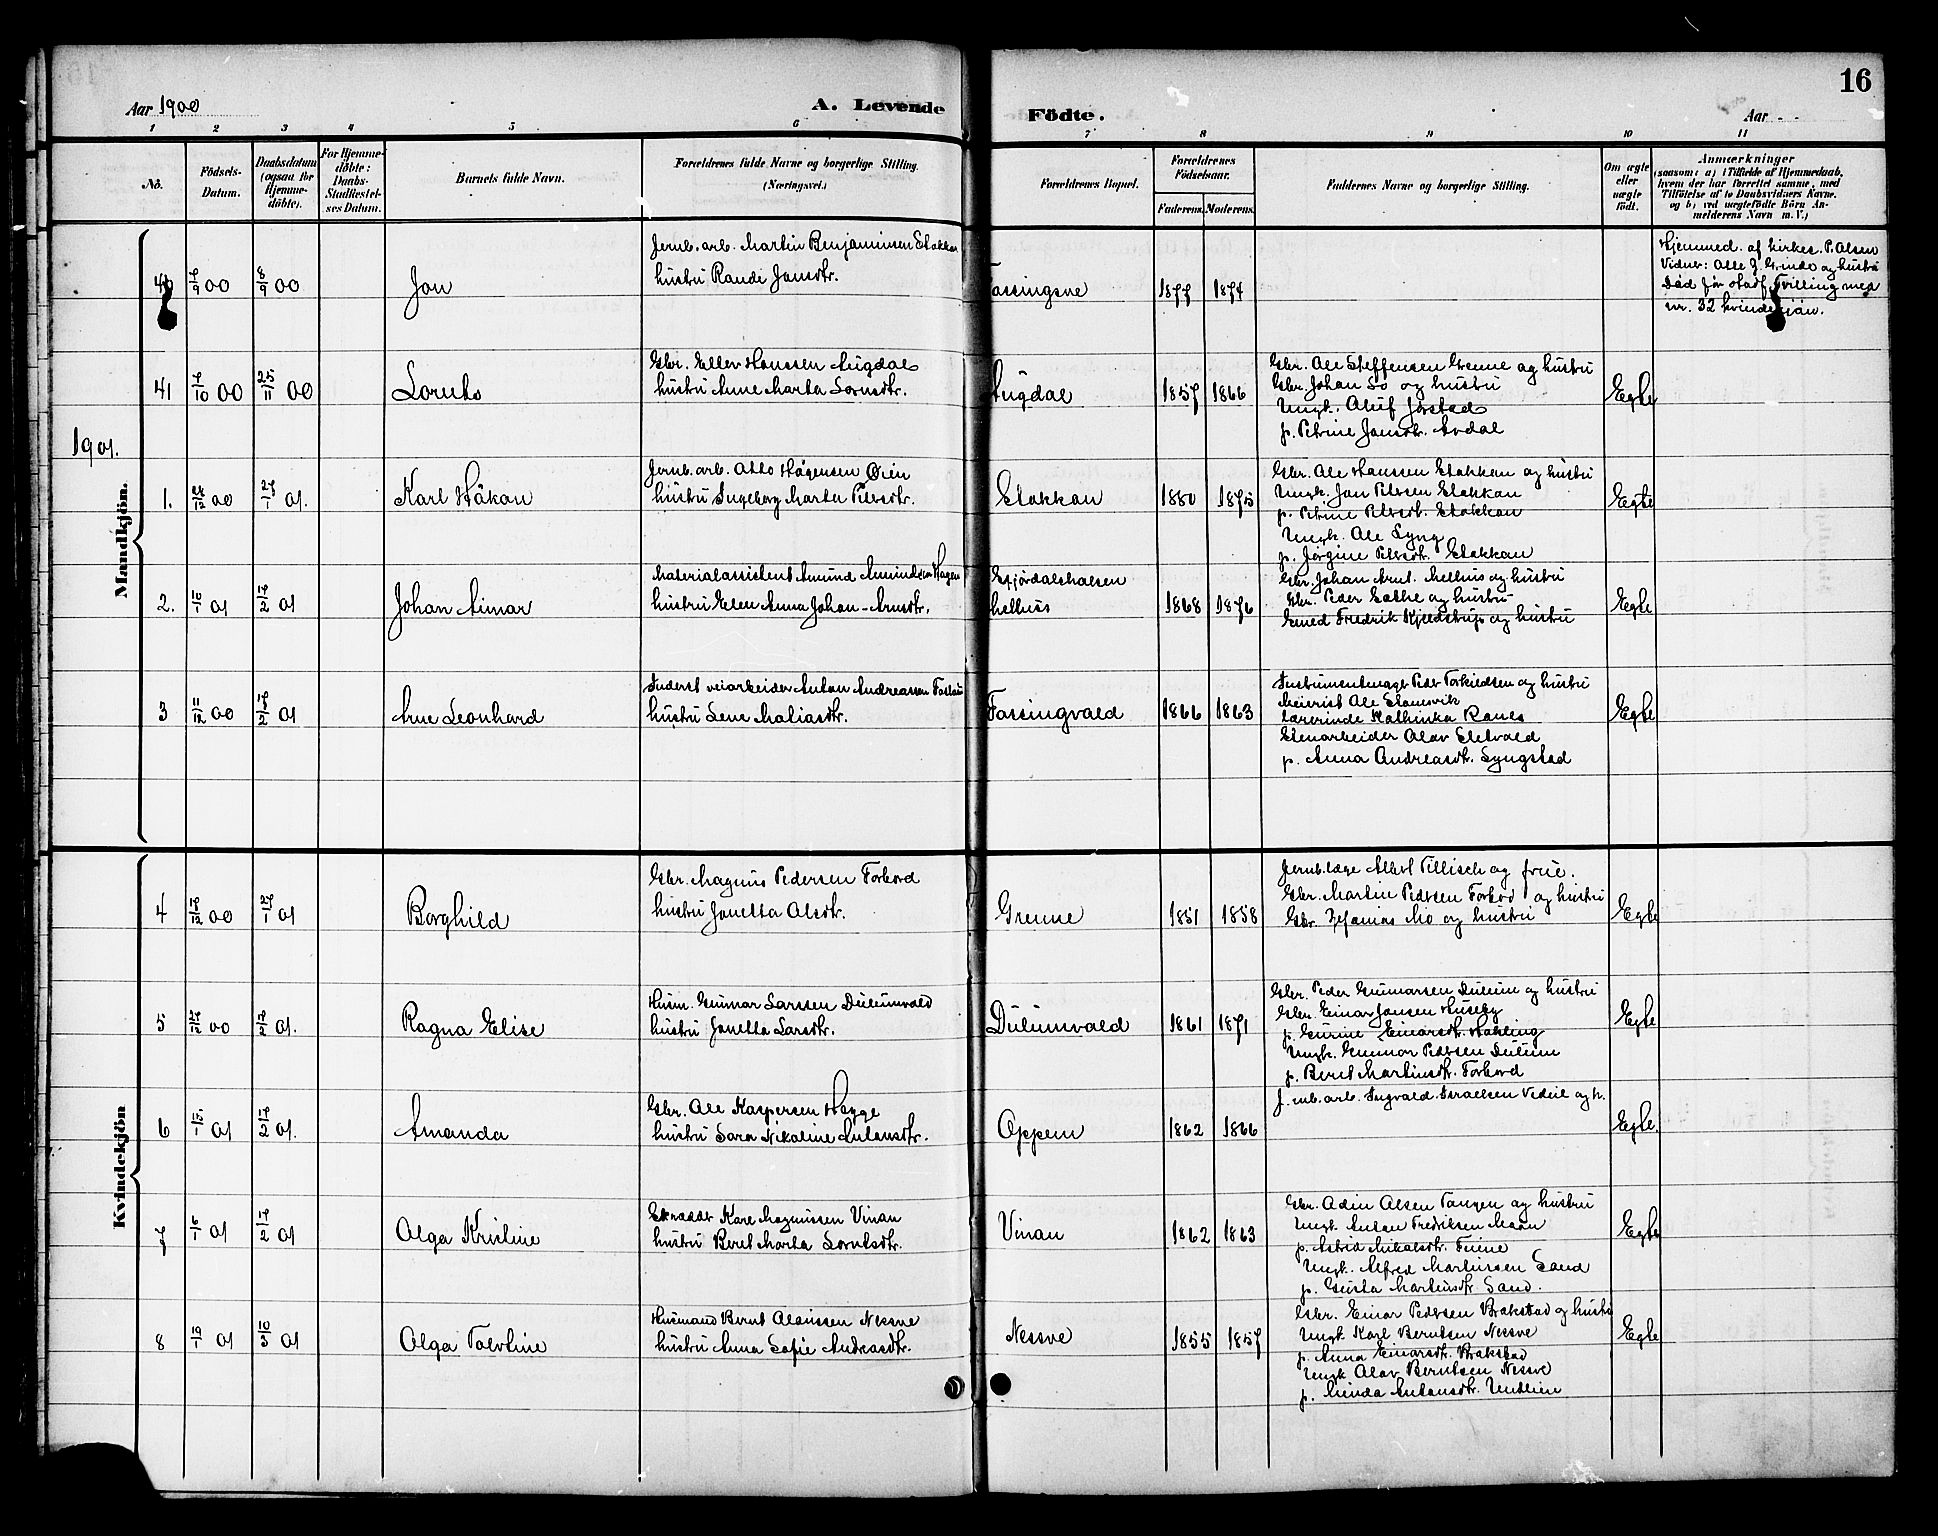 16
Aar 1900
A. Levende
Födte.
Aar
1 2 3 4 5 6 7 8 9 10 11
No.
Födsels-Datum.
Daabsdatum (ogsaa for Hjemme-döbte).
For Hjemme-döbte: Daabs-Stadfæstel-ses Datum.
Barnets fulde Navn.
Forældrenes fulde Navne og borgerlige Stilling.
(Næringsvei.)
Forældrenes Bopæl.
Forældrenes Födselsaar.
Faderens.
Moderens.
Faddernes Navne og borgerlige Stilling.
Om ægte eller uægte födt.
Anmærkninger
(saasom: a) i Tilfælde af Hjemmedaab, hvem der har forrettet samme, med Tilföielse af to Daabsvidners Navne, og b) ved uægtefödte Börn An-melderens Navn m. V.)
Mandkjön.
40 7/9 00 8/9 00 Jon
Jernb. arb. Martin Benjaminsen Stokkan
hustru Randi Jonsdtr.
Fossingsve 1877 1874
Hjemmed. af kirkes. P. Olsen
Vidner: Olle J. Grindo og hustru
Död för stadf. Tvilling med
nr. 32 kvindekjön.
41 7/10 00 25/11 00 Lornts
Gbr. Eller Hanssen Augdal
hustru Anne Marta Lornsdtr.
Augdal 1857 1866
Gbr. Ole Steffensen Grenne og hustru
Gbr. Johan Lo og hustru
Ungk. Oluf Jørstad
p. Petrine Jonsdtr. Avdal
Egte
1901.
1. 00 01. Karl Håkon
Jernb. arb. Otto Hågensen Øien
hustru Ingeborg Marta Petersdtr.
Stokkan 1880 1875
Gbr. Ole Hanssen Stokkan og hustru
Ungk. Jon Petersen Stokkan
p. Petrine Petersdtr. Stokkan
Ungk. Ole Lyng
p. Jørgine Petersdtr. Stokkan
Egte
2. 10/1 01 01 Johan Aimar
Materialassistent Amund Amundsen Hagen
hustru Elen Anna Johan-Arntsdtr.
Stjørdalshalsen
Melhus 1868 1876
Gbr. Johan Arnt. Melhus og hustru
Gbr. Peder og hustru
Fredrik Kjeldstrup og hustru
Egte
3 11/12 00 01 Arne Leonhard
Inderst veiarbeider Anton Andreassen
hustru Lene Maliasdtr.
Fossingvald 1866 1863
Instrumentmager Peder Torkildsen og hustru
Meierist Ole Stamsvik
Lærerinde Kathinka Ranes
Stenarbeider Olav Sletvold
p. Anna Andreasdtr. Lyngstad
Egte
Kvindekjön
4 00 01 Borghild
Gbr. Magnus Pedersen Forbord
hustru Jonetta Olsdtr.
Grenne 1851 1858
Jernb.læge Albert Tillisch og frue.
Gbr. Martin Pedersen Forbord og hustru
Gbr. Zefanias Mo og hustru
Egte
5 00 01. Ragna Elise
Husm. Gunnar Larssen Dulumvald
hustru Jonetta Larsdtr.
Dulumvald 1861 1871
Gbr. Peder Gunnarsen Dulum og hustru
Gbr. Einar Jonsen Huseby
p. Gurine Einarsdtr.
Ungk. Gunnar Pedersen Dulum
p. Beret Martinsdtr. Forbord
Egte
6 01 01. Amanda
Gbr. Ole Kaspersen Hegge
hustru Sara Nikoline Antonsdtr.
Oppem 1862 1866
J.nb.arb. Ingvald Israelsen og h.
Egte.
7 01 01 Olga Kristine
Skrædder Karl Magnussen Vinan
hustru Beret Marta Lorntsdtr.
Vinan 1862 1863
Gbr. Odin Olsen Tangen og hustru
Ungk. Anton Fredriksen Moan
p. Astrid Mikalsdtr.
Ungk. Alfred Martinsen Sand
p. Gusta Martinsdtr. Sand.
Egte
8 01 10/2 01 Olga Tolvline
Husmand Bernt Olaussen Nessve
hustru Anna Sofie Andreasdtr.
Nessve 1855 1857
Gbr. Einar Pedersen Brakstad og hustru
Ungk Karl Berntsen Nessve
p. Anna Einarsdtr. Brakstad
Ungk Olav Berntsen Nessve
p. Minda Antonsdtr.
Egte